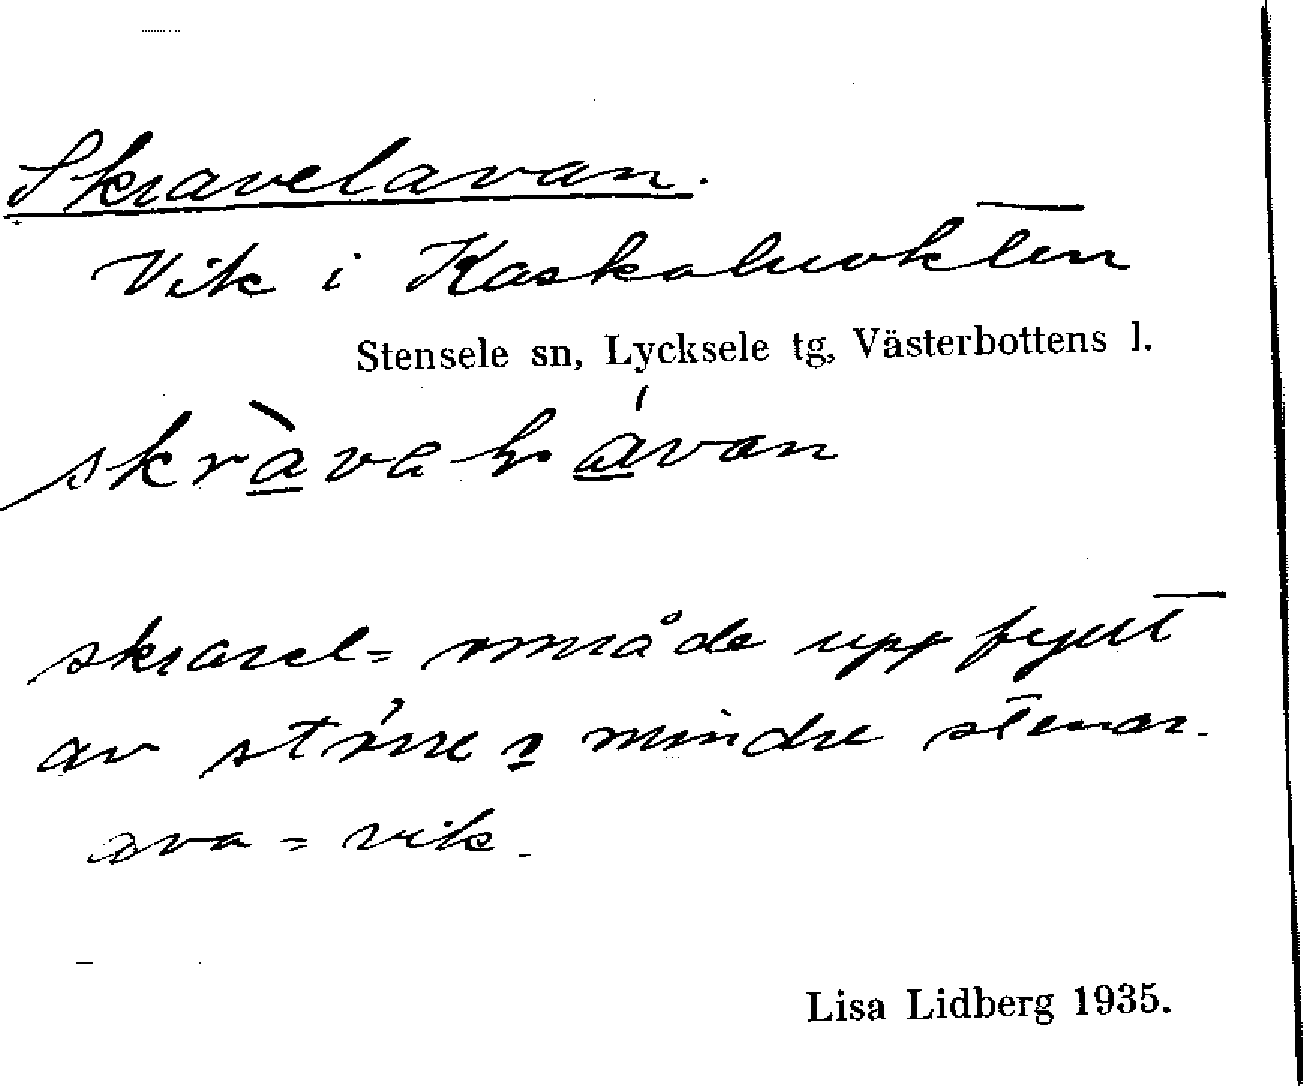 Skravelavan.
Vik i Kaskoluokten
Stensele sn, Lycksele tg, Västerbottens l.
skravel = område uppfyllt
av större o mindre stenar.
ava = vik.
Lisa Lidberg 1935.